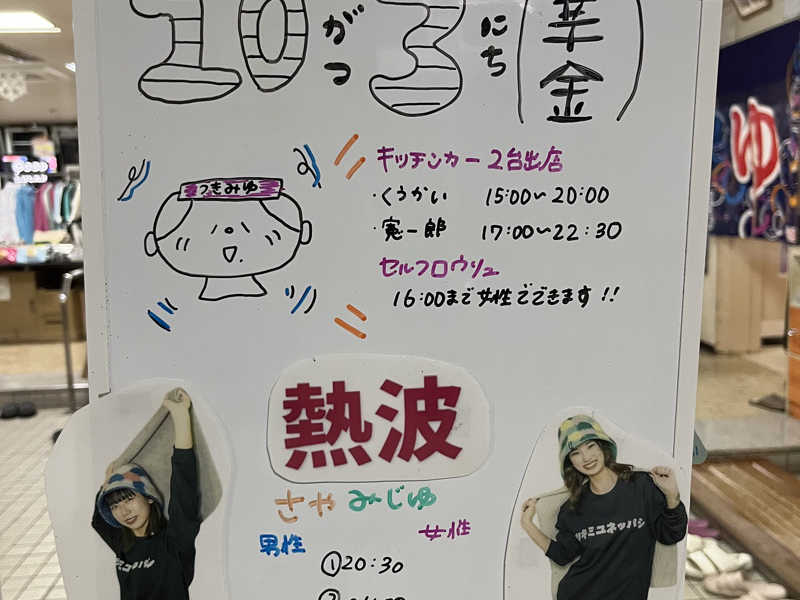 10がつ3にち(華金)
つきみゆ
キッチンカー 2台出店
・くうかい 15:00〜20:00
・寛一郎 17:00〜22:30
セルフロウリュ
16:00まで女性でできます!!
熱波
さや みーじゅ
男性 女性
①20:30
ツキミユネッパシ
ゆ